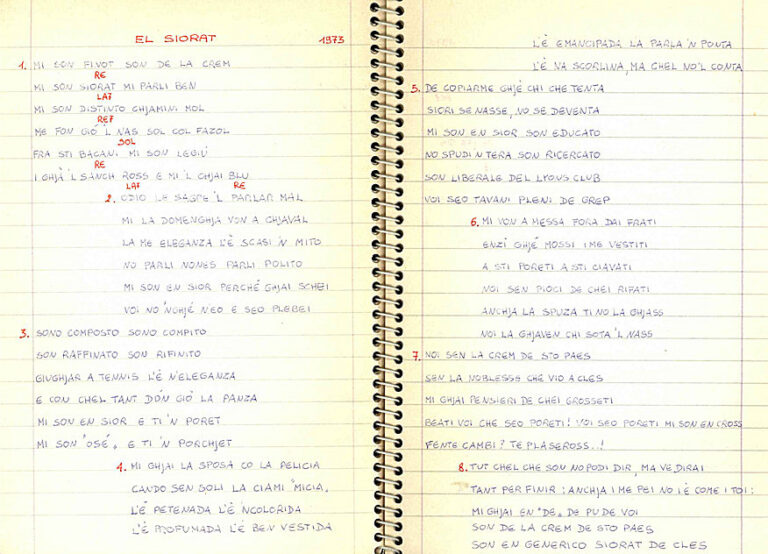 EL SIORAT 1973
1. MI SON FINOT SON DE LA CREM
RE
MI SON SIORAT MI PARLI BEN
LA7
MI SON DISTINTO CHJAMINI MOL
RE7
ME FON GIÓ 'L NAS SOL COL FAZOL
SOL
FRA STI BACANI MI SON LEGIÚ
RE
I GHJÀ 'L SANCH ROSS E MI 'L CHJAI BLU
LA7 RE
2. ODIO LE SAGRE 'L PARLAR MAL
MI LA DOMENGHJA VON A CHJAVAL
LA ME ELEGANZA L'È SCASI 'N MITO
NO PARLI NONES PARLI POLITO
MI SON EN SIOR PERCHÉ GHJAI SCHEI
VOI NO 'NGHJÉ NEO E SEO PLEBEI
3. SONO COMPOSTO SONO COMPITO
SON RAFFINATO SON RIFINITO
GIUGHJAR A TENNIS L'È N'ELEGANZA
E CON CHEL TANT DÓN GIÓ LA PANZA
MI SON EN SIOR E TI 'N PORET
MI SON "OSÉ" E TI 'N PORCHJET
4. MI GHJAI LA SPOSA CO LA PELICIA
CANDO SEN SOLI LA CIAMI "MICIA"
L'È PETENADA L'È NCOLORIDA
L'È PROFUMADA L'È BEN VESTIDA
L'È EMANCIPADA LA PARLA 'N PONTA
L'È NA SCORLINA, MA CHEL NO'L CONTA
5. DE COPIARME GHJÉ CHI CHE TENTA
SIORI SE NASSE, NO SE DEVENTA
MI SON EN SIOR SON EDUCATO
NO SPUDI 'N TERA SON RICERCATO
SON LIBERALE DEL LYONS CLUB
VOI SEO TAVANI PLENI DE GREP
6. MI VON A MESSA FORA DAI FRATI
ENZÍ GHJÉ MOSSI I ME VESTITI
A STI PORETI A STI CIAVATI
NOI SEN PIOCI DE CHEI RIFATI
ANCHJA LA SPUZA TI NO LA GHJASS
NOI LA GHJAVEN CHI SOTA 'L NASS
7. NOI SEN LA CREM DE STO PAES
SEN LA NOBLESSE CHE VIO A CLES
MI GHJAI PENSIERI DE CHEI GROSSETI
BEATI VOI CHE SEO PORETI! VOI SEO PORETI MI SON EN CROSS
FENTE CAMBI? TE PLASEROSS..!
8. TUT CHEL CHE SON NO PODI DIR, MA VEDIRAI
TANT PER FINIR: ANCHJA I ME PEI NO I È COME I TOI:
MI GHJAI EN "DE" DE PU DE VOI
SON DE LA CREM DE STO PAES
SON EN GENERICO SIORAT DE CLES